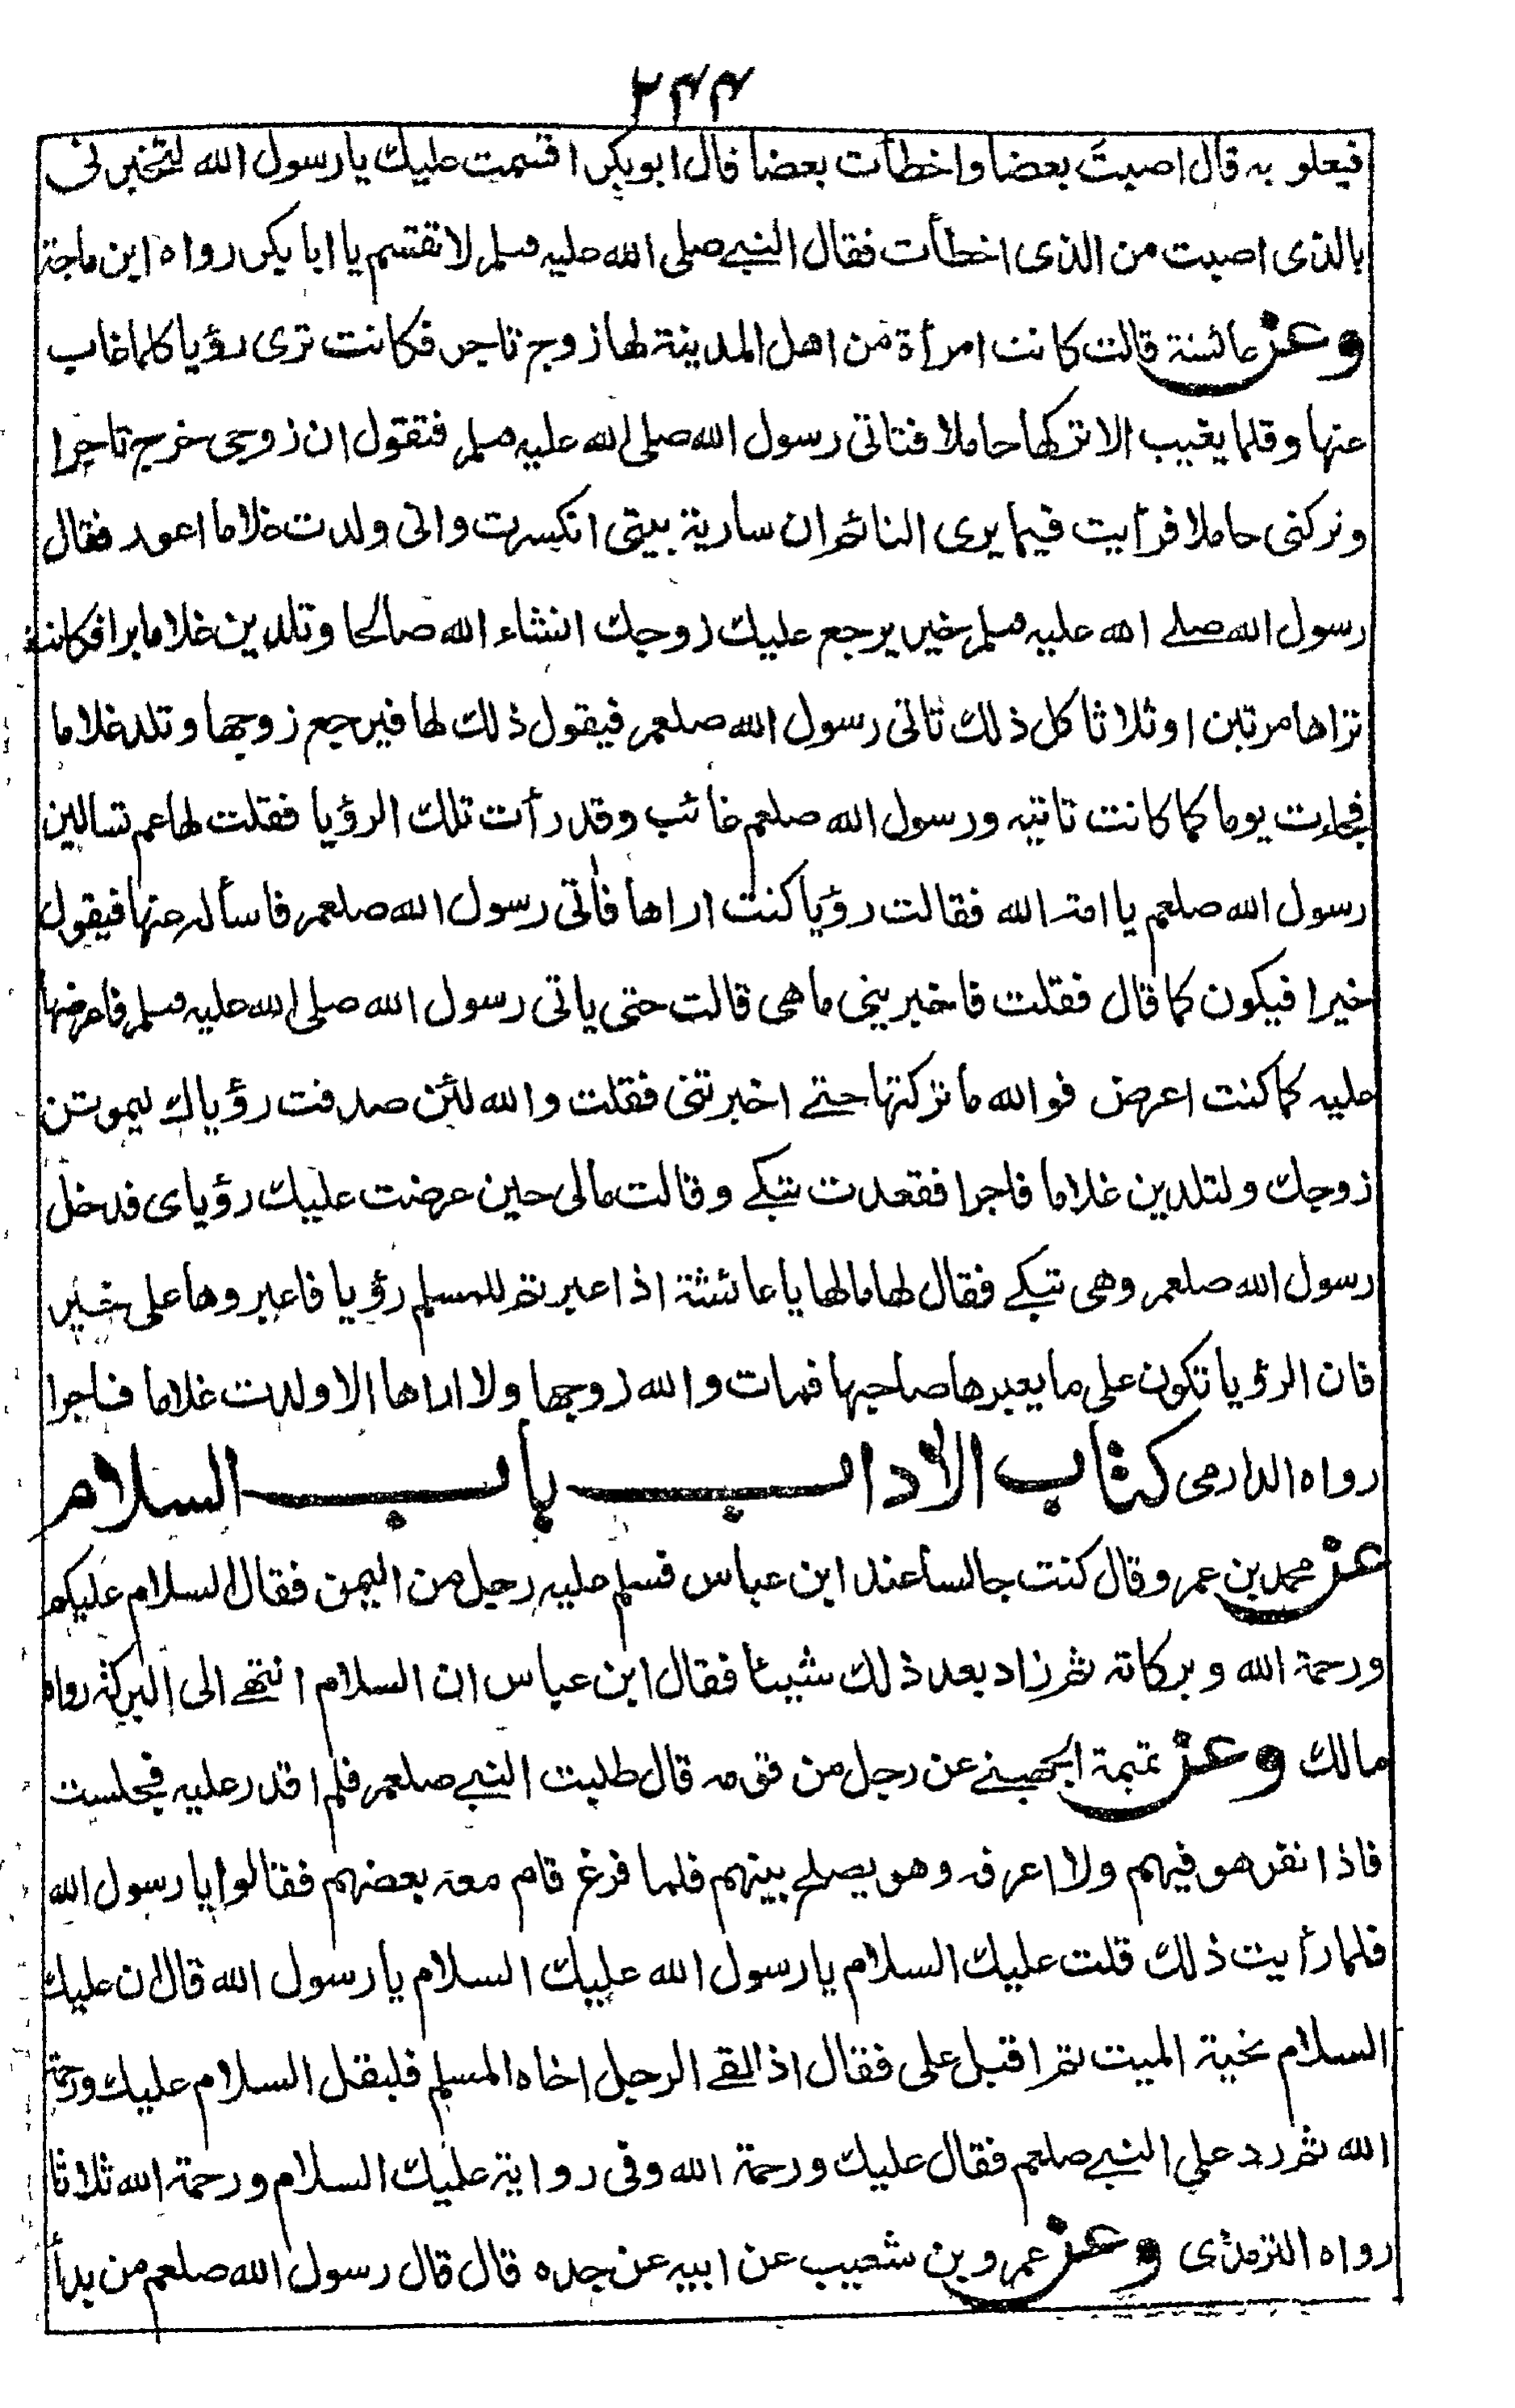 ٢٤٤
فيعلو به قال اصبت بعضا واخطأت بعضا قال ابوبكر اقسمت عليك يا رسول الله لتخبرنى
بالذى اصبت من الذى اخطأت فقال النبے صلى الله عليه وسلم لا تقسم يا ابا بكر رواه ابن ماجة
وعن عائشة قالت كانت امرأة من اهل المدينة لها زوج تاجر فكانت ترى رؤيا كلما غاب
عنها وقلما يغيب الا تركها حاملا فتاتى رسول الله صلى الله عليه وسلم فتقول ان زوجى خرج تاجرا
وتركنى حاملا فرأيت فيما يرى النائم ان سارية بيتى انكسرت وانى ولدت غلاما اعور فقال
رسول الله صلے الله عليه وسلم خير يرجع عليك زوجك انشاء الله صالحا وتلدين غلاما برا فكانت
تراها مرتين او ثلاثا كل ذلك تاتى رسول الله صلعم فيقول ذلك لها فيرجع زوجها وتلد غلاما
فجاءت يوما كما كانت تاتيه ورسول الله صلعم غائب وقد رأت تلك الرؤيا فقلت لها عم تسالين
رسول الله صلعم يا امة الله فقالت رؤيا كنت اراها فأتى رسول الله صلعم فاسأله عنها فيقول
خيرا فيكون كما قال فقلت فاخبرينى ما هى قالت حتى ياتى رسول الله صلى الله عليه وسلم فاعرضها
عليه كما كنت اعرض فوالله ما تركتها حتے اخبرتنى فقلت والله لئن صدقت رؤياك ليموتن
زوجك ولتلدين غلاما فاجرا فقعدت تبكے وقالت مالى حين عرضت عليك رؤياى فدخل
رسول الله صلعم وهى تبكے فقال لها مالها يا عائشة اذا عبرتم للمسلم رؤيا فاعبروها على خير
فان الرؤيا تكون على ما يعبرها صاحبها فمات والله زوجها ولا اراها الا ولدت غلاما فاجرا
رواه الدارمى كتاب الاداب باب السلام
عن محمد بن عمرو قال كنت جالسا عند ابن عباس فسلم عليه رجل من اليمن فقال السلام عليكم
ورحمة الله وبركاته ثم زاد بعد ذلك شيئا فقال ابن عباس ان السلام انتهے الى البركة رواه
مالك وعن تميمة الجهينے عن رجل من قومه قال طلبت النبے صلعم فلم اقدر عليه فجلست
فاذا نفر هو فيهم ولا اعرفه وهو يصلح بينهم فلما فرغ قام معه بعضهم فقالوا يا رسول الله
فلما رأيت ذلك قلت عليك السلام يا رسول الله عليك السلام يا رسول الله قال ان عليك
السلام تحية الميت ثم اقبل على فقال اذا لقے الرجل اخاه المسلم فليقل السلام عليك ورحمة
الله ثم رد على النبے صلعم فقال عليك ورحمة الله وفى رواية عليك السلام ورحمة الله ثلاثا
رواه الترمذى وعن عمرو بن شعيب عن ابيه عن جده قال قال رسول الله صلعم من بدأ